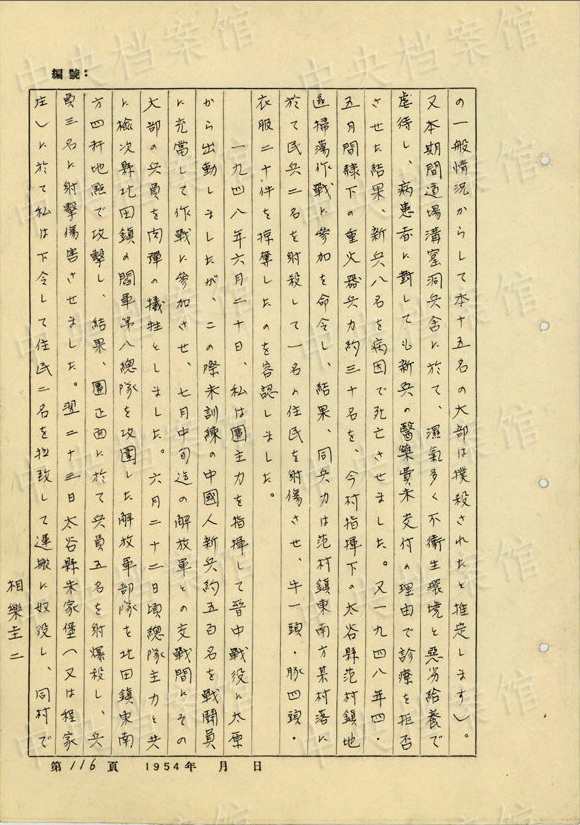 編號：
の一般情況からして本十五名の大部は撲殺されたと推定します）。
又本期間道場溝窰洞兵舎に於て、濕氣多く不衛生環境と惡劣給養で
虐待し、病患者に對しても新兵の醫藥費未交付の理由で診療を拒否
させた結果、新兵八名を病因で死亡させました。又一九四八年四・
五月間隷下の重火器兵力約三十名を、今村指揮下の太谷縣范村鎮地
區掃蕩作戰に參加を命令し、結果、同兵力は范村鎮東南方某村落に
於て民兵二名を射殺して一名の住民を射傷させ、牛一頭・豚四頭・
衣服二十件を掠奪したのを容認しました。
一九四八年六月二十日、私は團主力を指揮して晋中戰役に太原
から出動しましたが、この際未訓練の中國人新兵約五百名を戰鬪員
に充當して作戰に參加させ、七月中旬迄の解放軍との交戰間にその
大部の兵員を肉彈の犠牲としました。六月二十二日頃總隊主力と共
に榆次縣北田鎮の閻軍第八總隊を攻圍した解放軍部隊を北田鎮東南
方四粁地點で攻撃し、結果、團正面に於て兵員五名を射爆殺し、兵
員三名に射撃傷害させました。翌二十三日太谷縣朱家堡（又は程家
庄）に於て私は下令して住民二名を拉致して運搬に奴役し、同村で
相樂圭二
第 116 頁 1954年 月 日
中央档案馆